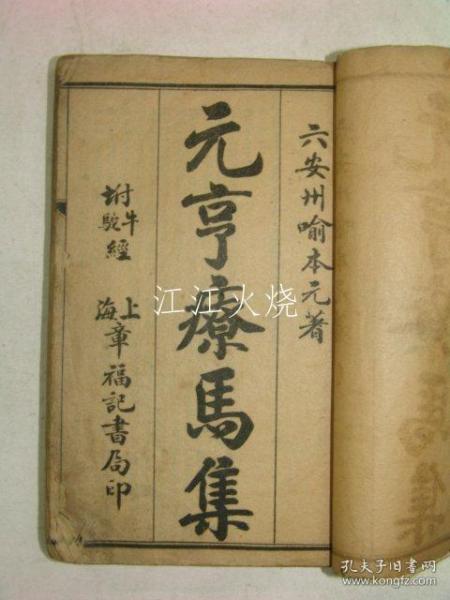 六安州喻本元著
元亨療馬集
坿牛駝經
上海章福記書局印
江江火烧
孔夫子旧书网
www.kongfz.com